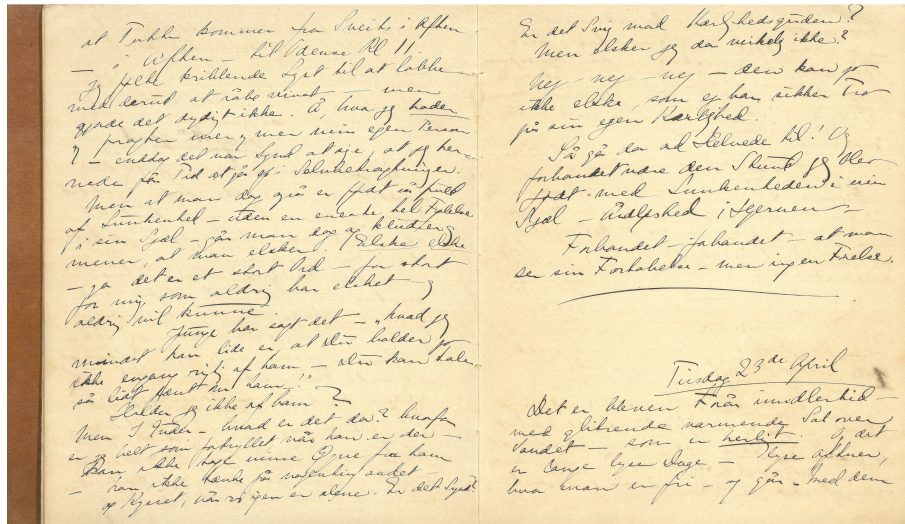 at Tukke kommer fra Sveits i Aften
– " – Aften – til denne Kl 11
Jeg følte kriblende Lyst til at løbe
med derut at råbe vivat – men
gjorde det dydigt ikke. Å, hvor jeg hader
mer min egen Person
– endda det var Synd at sige, at jeg her-
nede får Tid at gå op i Selvbetragtninger.
Men at man dog også er født så fuld
af Lunkenhet – uden en eneste hel Følelse
i sin Sjæl – går man dog og
mener, at man elsker. Elske elske
– ja det er et stort Ord – for stort
for mig, som aldrig har elsket – og
aldrig vil kunne.
har sagt det – "hvad jeg
mindst kan lide er, at Du holder jo
ikke engang rigtig af ham – Du kan tale
så lidt pænt om ham!"
Holder jeg ikke af ham?
Men I Guder – hvad er det da? hvorfor
er jeg helt som forbyllet når han er der –
kan ikke tage mine Øjne fra ham
– kan ikke tænke på nogenting andet –
og Kysset, når vi igen er alene. Er det Synd?
Er det Svig mod Kærlighedsguden?
Men elsker jeg da virkelig ikke?
Nej – nej – nej – den kan jo
ikke elske, som ej har sikker Tro
på sin egen Kærlighed.
Så gå da ad Helvede til! Og
forbandet være den Stund jeg blev
født med Lunkenheden i min
Sjæl – i Hjernen –
Forbandet – forbandet – at man
ser sin Fortabelse – men ingen Frelse.
Tirsdag 23de April
Det er bleven Forår imidlertid –
med glitrende varmende Sol over
Vandet – som er herligt. Og det
er lange lyse Dage – lyse Aftner,
hvor man er fri – og går – med dem